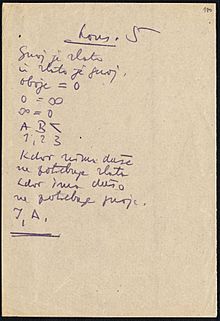 Kons. 5
Gnoj je zlato
in zlato je gnoj.
oboje = 0
0 = ∞
∞ = 0
A B <
1, 2, 3
Kdor nima duše
ne potrebuje zlata
kdor ima dušo
ne potrebuje gnoja.
I, A.